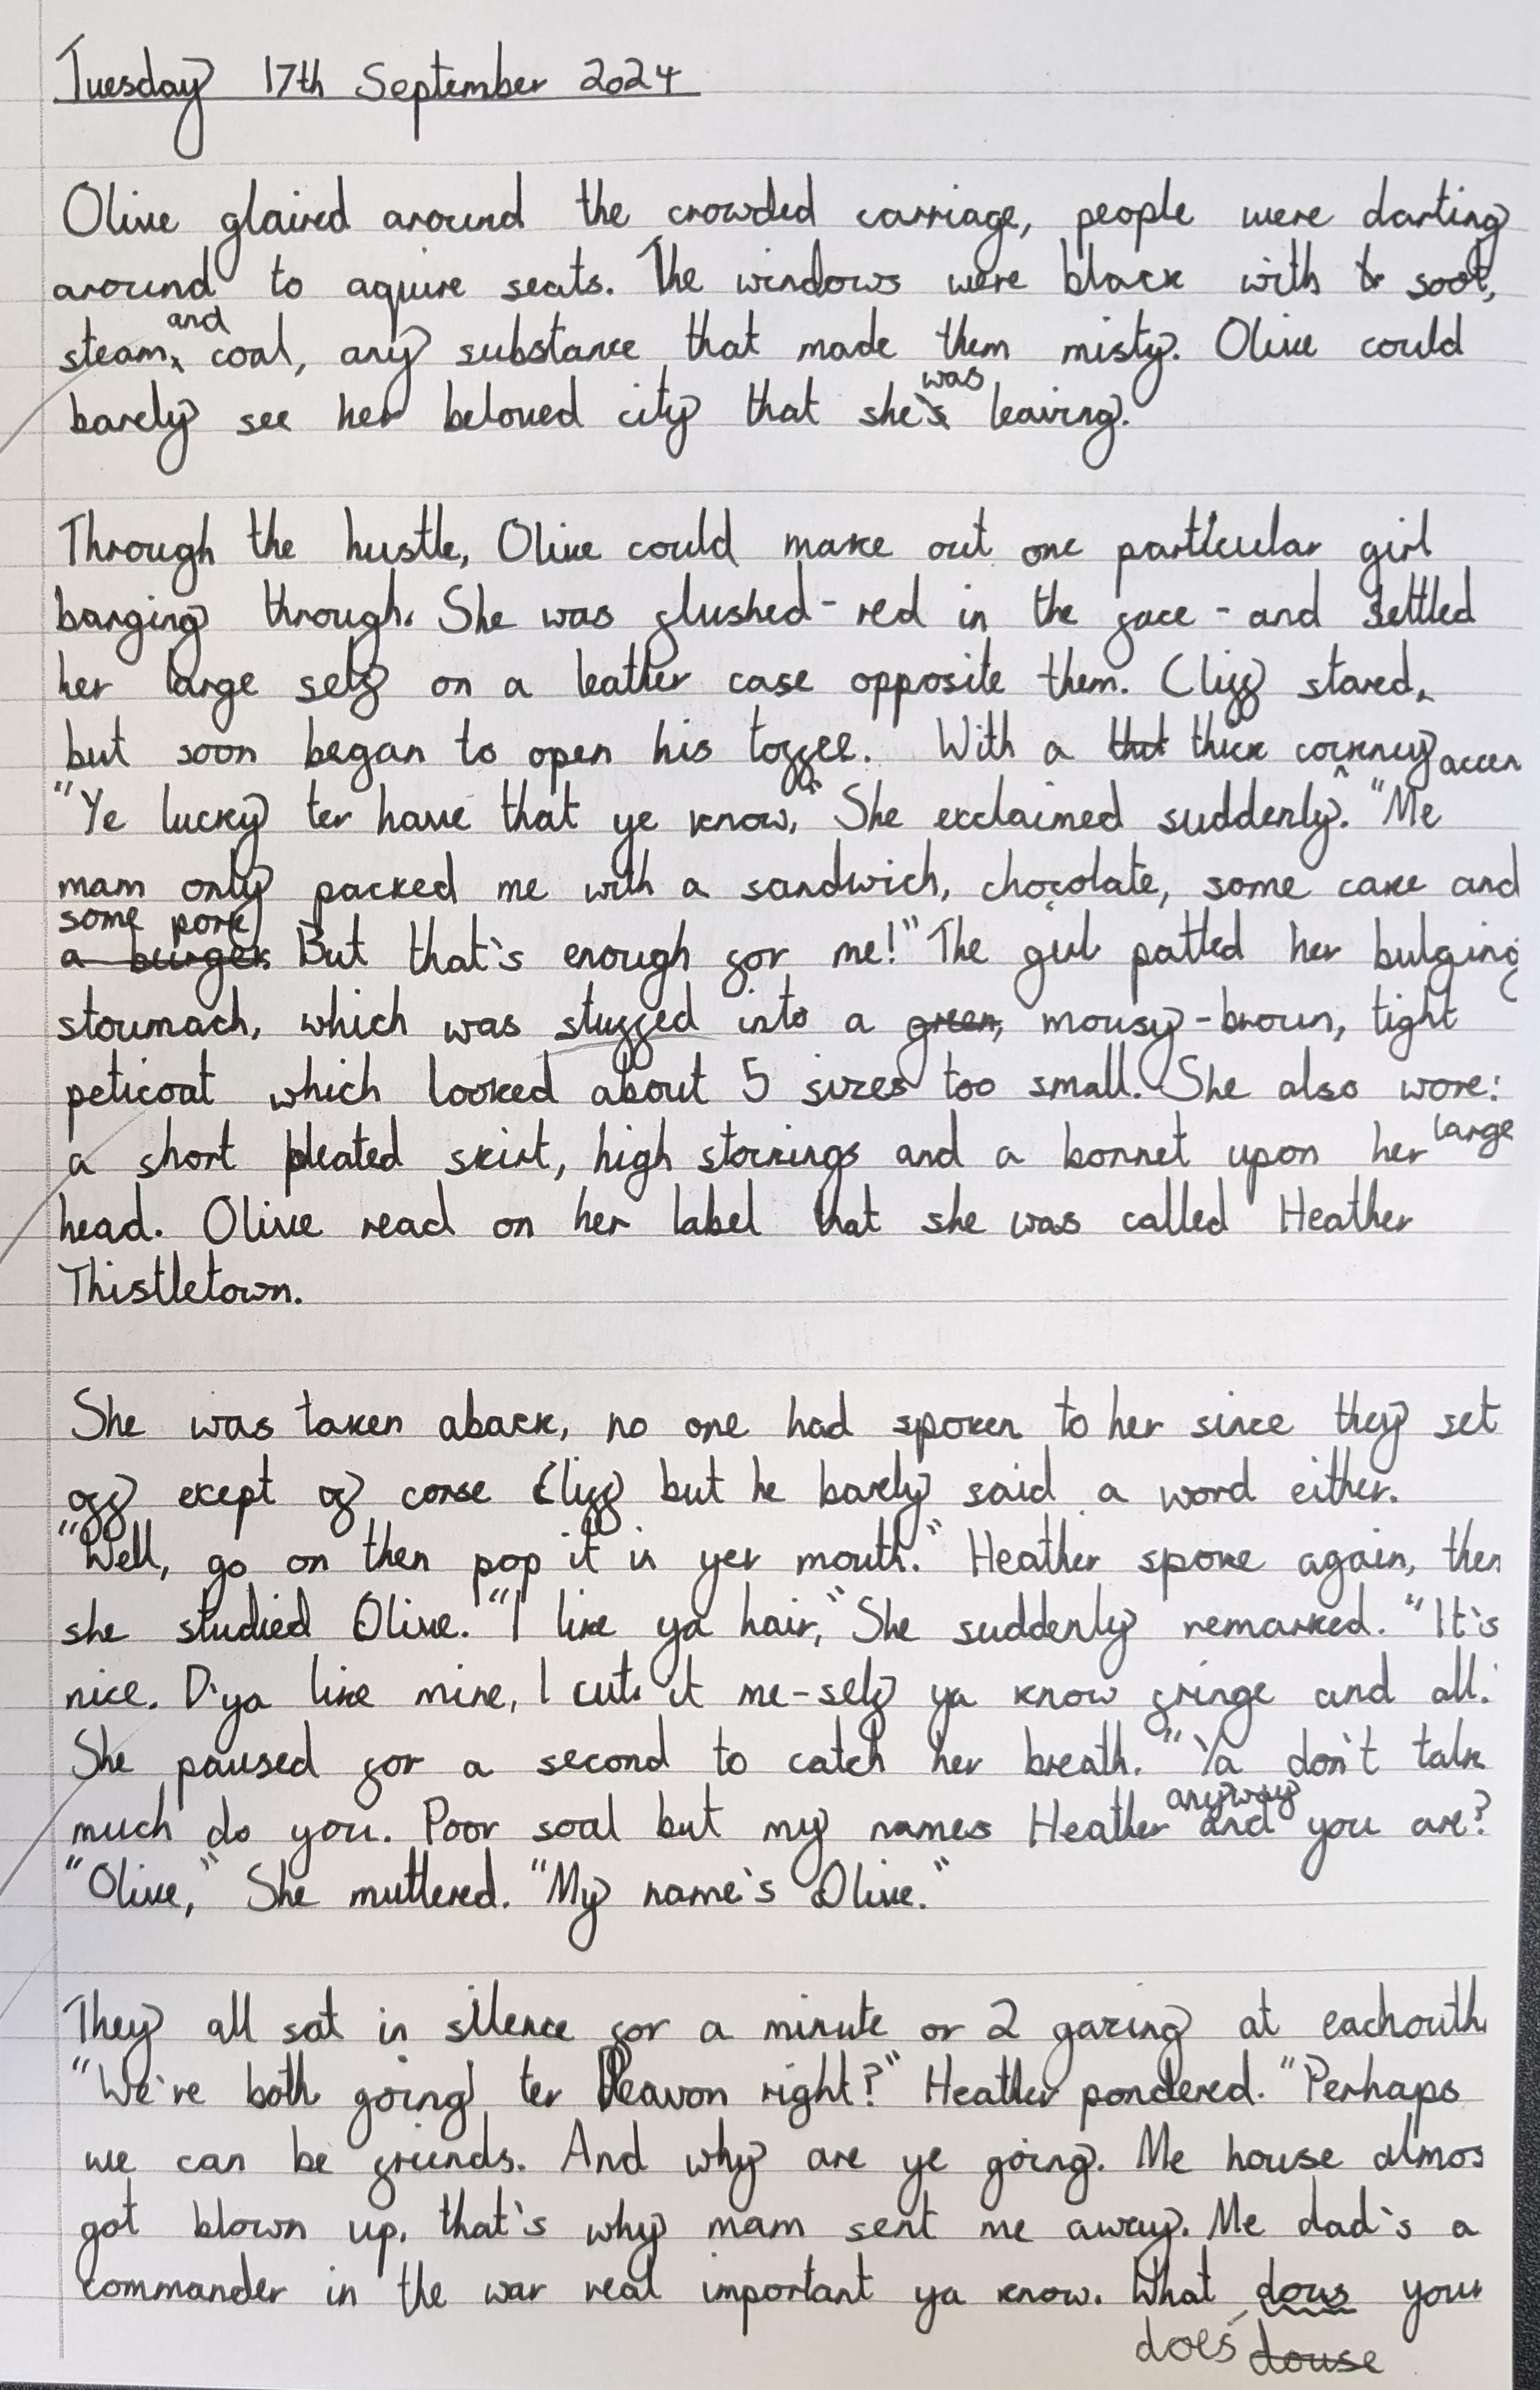 Tuesday 17th September 2024
Olive glaired around the crowded carriage, people were darting
around to aquire seats. The windows were black with soot,
steam, and coal, any substance that made them misty. Olive could
barely see her beloved city that she was leaving.
Through the hustle, Olive could make out one particular girl
barging through. She was flushed - red in the face - and settled
her large self on a leather case opposite them. Cliff stared,
but soon began to open his toffee. With a that thick cockney accen
"Ye lucky ter have that ye know," She exclaimed suddenly. "Me
mam only packed me with a sandwich, chocolate, some cake and
some pork
a burger. But that's enough for me!" The girl patted her bulging
stoumach, which was stuffed into a green, mousy-brown, tight
peticoat which looked about 5 sizes too small. She also wore:
a short pleated skirt, high stockings and a bonnet upon her large
head. Olive read on her label that she was called Heather
Thistletown.
She was taken aback, no one had spoken to her since they set
off exept of corse Cliff but he barely said a word either.
"Well, go on then pop it in yer mouth." Heather spoke again, then
she studied Olive. "I like ya hair," She suddenly remarked. "It's
nice. D'ya like mine, I cut it me-self ya know fringe and all."
She paused for a second to catch her breath. "Ya don't talk
much do you. Poor soal but my names Heather anyway and you are?
"Olive," She muttered. "My name's Olive."
They all sat in silence for a minute or 2 gazing at eachouth
"We're both going ter Deavon right?" Heather pondered. "Perhaps
we can be friends. And why are ye going. Me house almos
got blown up, that's why mam sent me away. Me dad's a
commander in the war real important ya know. What dous your
does douse